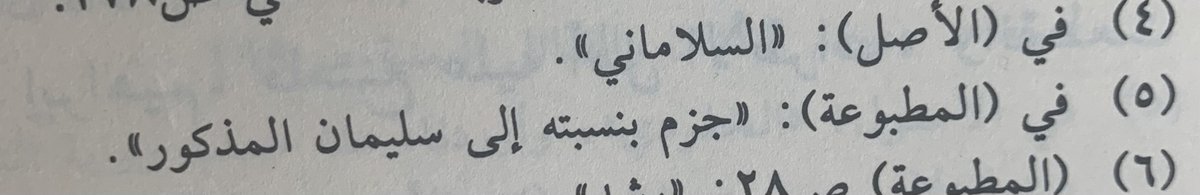 في ص
(٤) في (الأصل): «السلاماني».
(٥) في (المطبوعة): «جزم بنسبته إلى سليمان المذكور».
(٦) (المطبوعة) ص ٢٨: